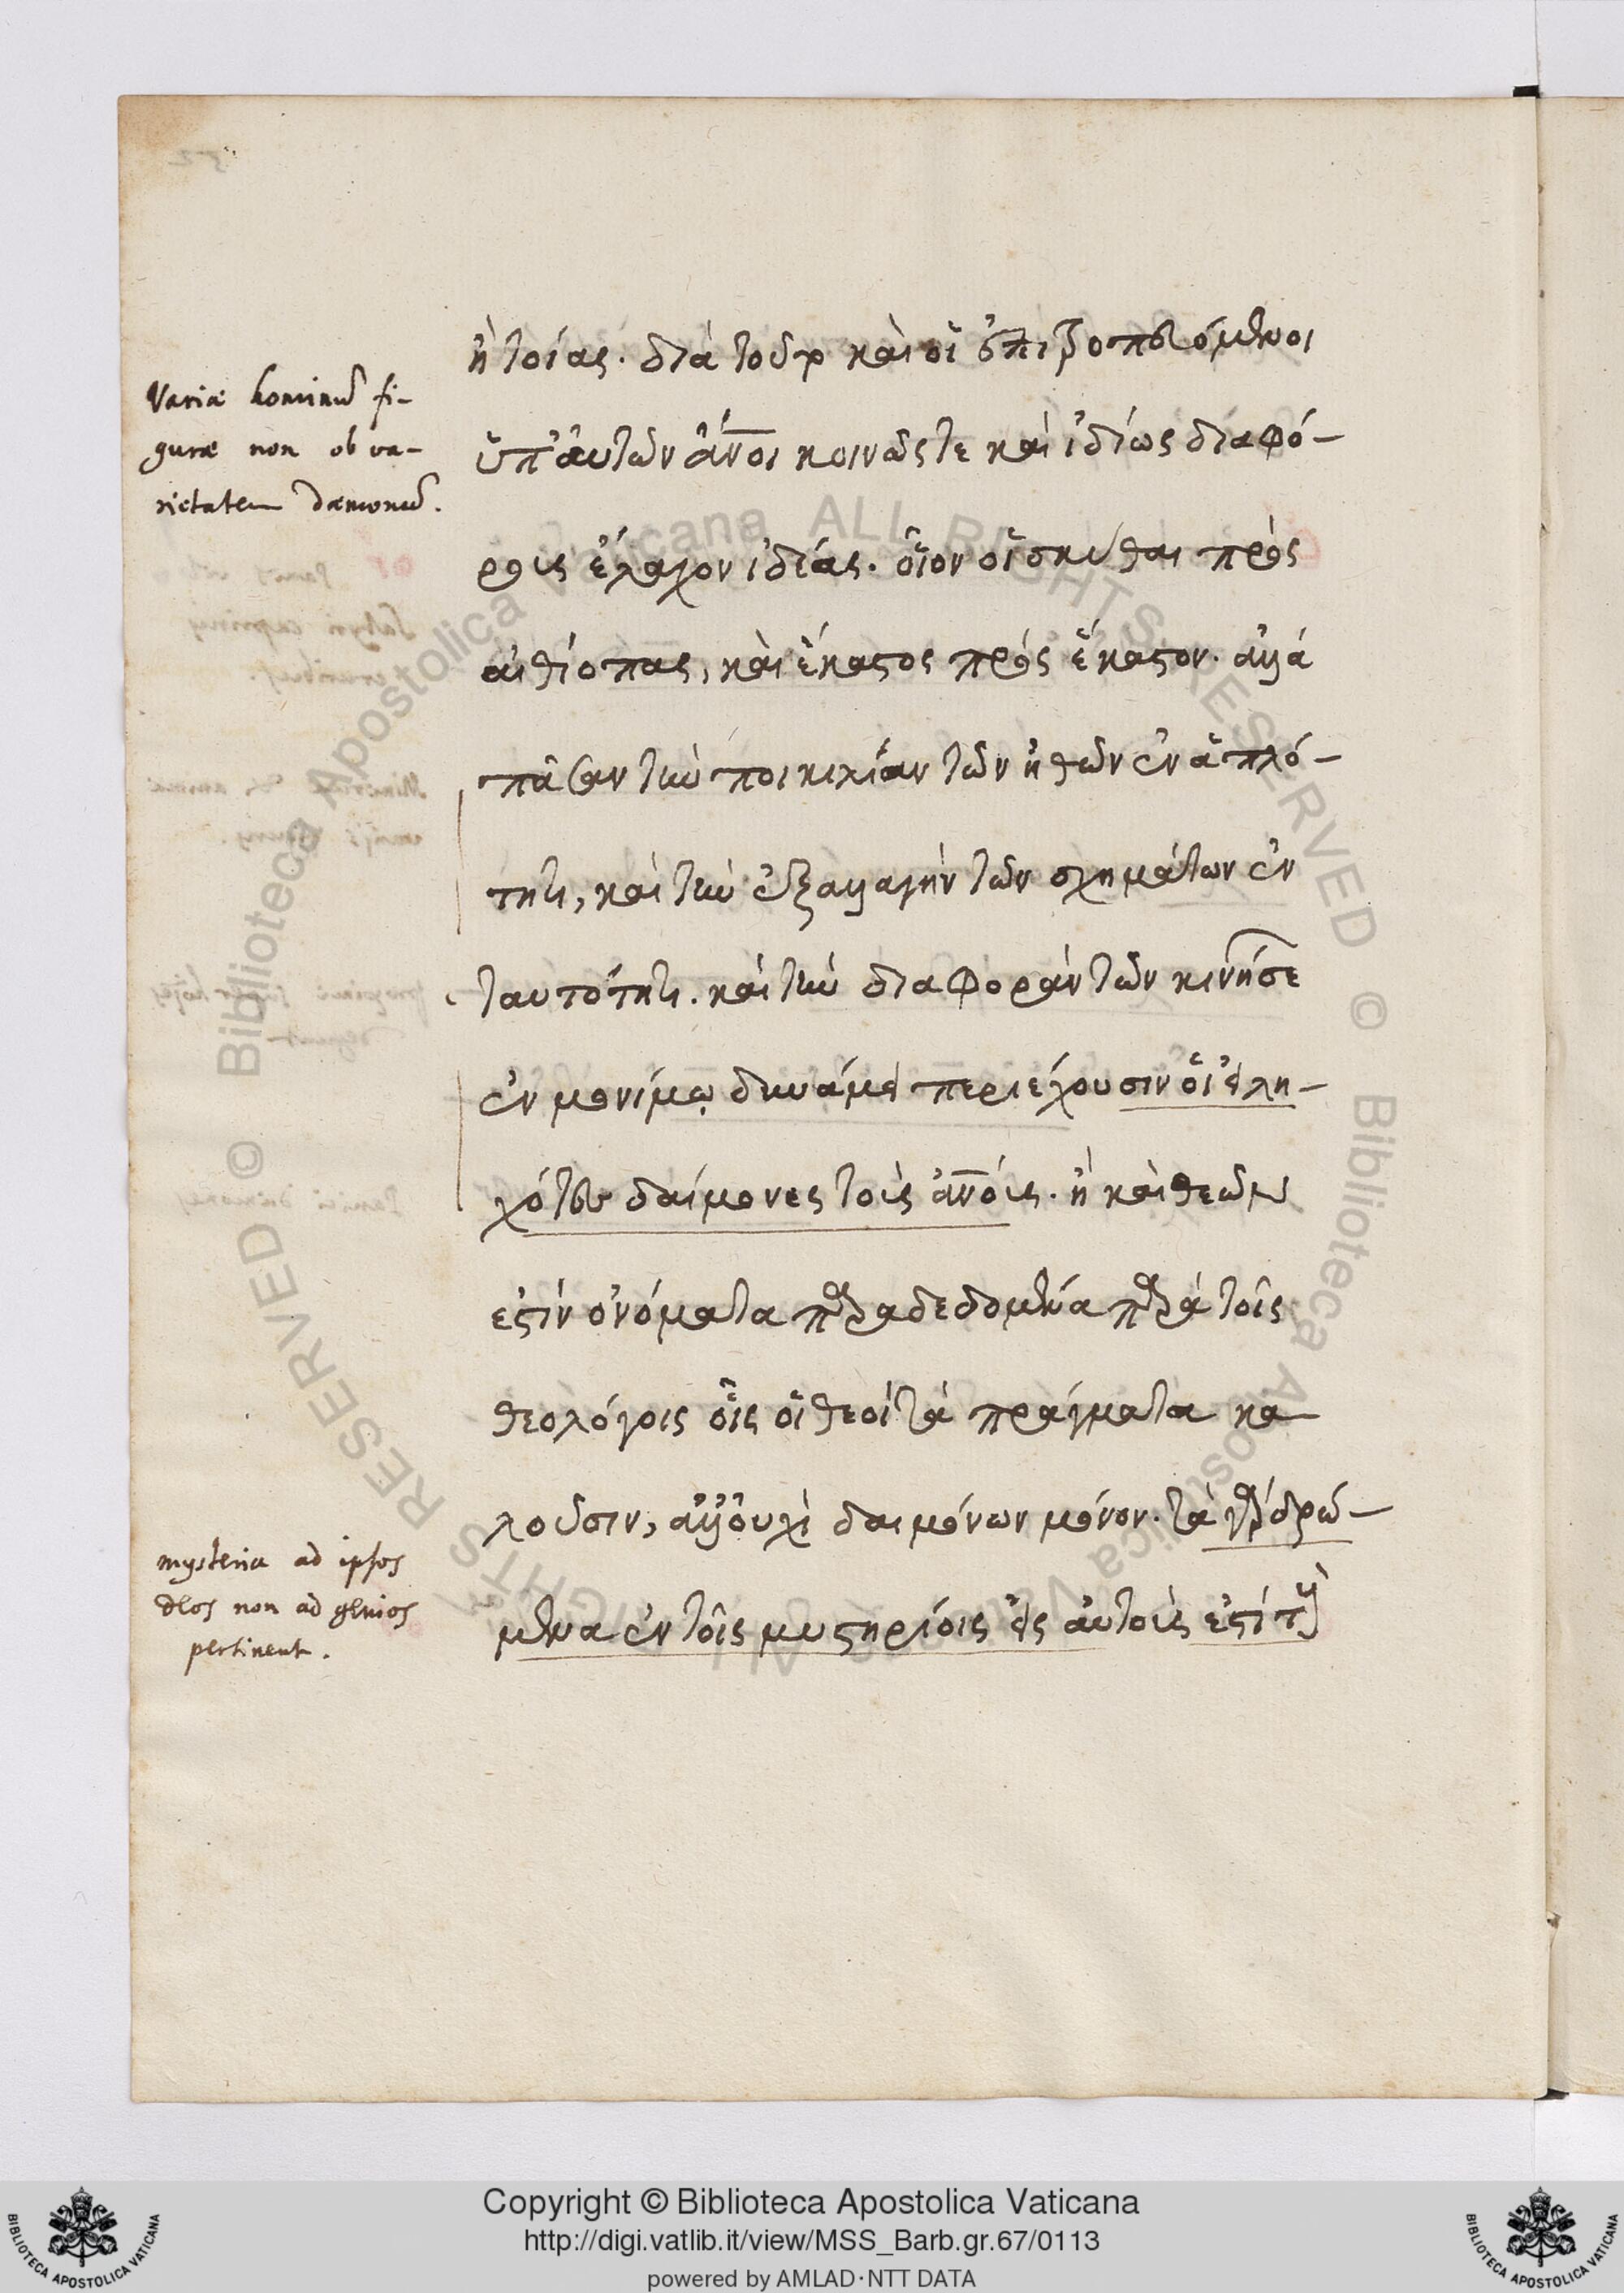 Variæ hominũ fi-
guræ non ob va-
rietatem dæmonũ.
ἢ τοίας. διὰ τοῦτο καὶ οἱ ἐπιτροπευόμενοι
ὑπ' ἀυτῶν ἄν̅οι κοινῶς τε καὶ ἰδίως διαφό-
ρους ἔλαχον ἰδέας. οἷον οἱ σκύθαι πρὸς
αἰθίοπας, καὶ ἕκαστος πρὸς ἕκαστον. ἀλλὰ
πᾶσαν τὴν ποικιλίαν τῶν ἠθῶν ἐν ἁπλό-
τητι, καὶ τὴν ἐξαλλαγὴν τῶν σχημάτων ἐν
ταυτότητι. καὶ τὴν διαφορὰν τῶν κινήσε
ἐν μονίμῳ δυνάμει περιέχουσιν οἱ εἰλη-
χότες δαίμονες τοὺς ἀν̅ους. ἢ καὶ θεῶν
ἐστὶν ὀνόματα παραδεδομένα παρὰ τοῖς
θεολόγοις οἷς οἱ θεοὶ τὰ πράγματα κα
λοῦσιν, ἀλλ' ὀυχὶ δαιμόνων μόνον. τὰ γὰρ δρώ-
μενα ἐν τοῖς μυστηρίοις εἰς ἀυτοὺς ἐστὶ
mysteria ad ipsos
deos non ad genios
pertinent.
Copyright © Biblioteca Apostolica Vaticana
http://digi.vatlib.it/view/MSS_Barb.gr.67/0113
powered by AMLAD·NTT DATA